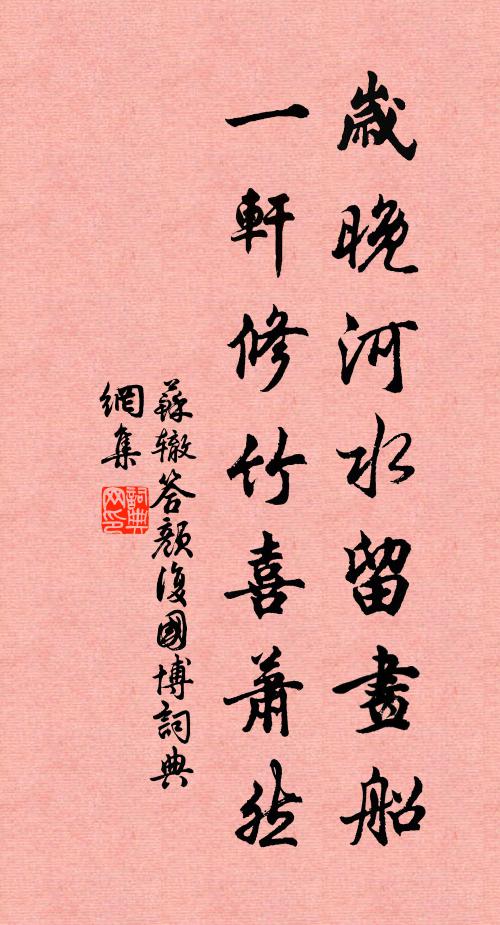 歲晚河水留畫船
一軒修竹喜蕭然
蘇轍答顏復國博詞典
網集
詞典
网印